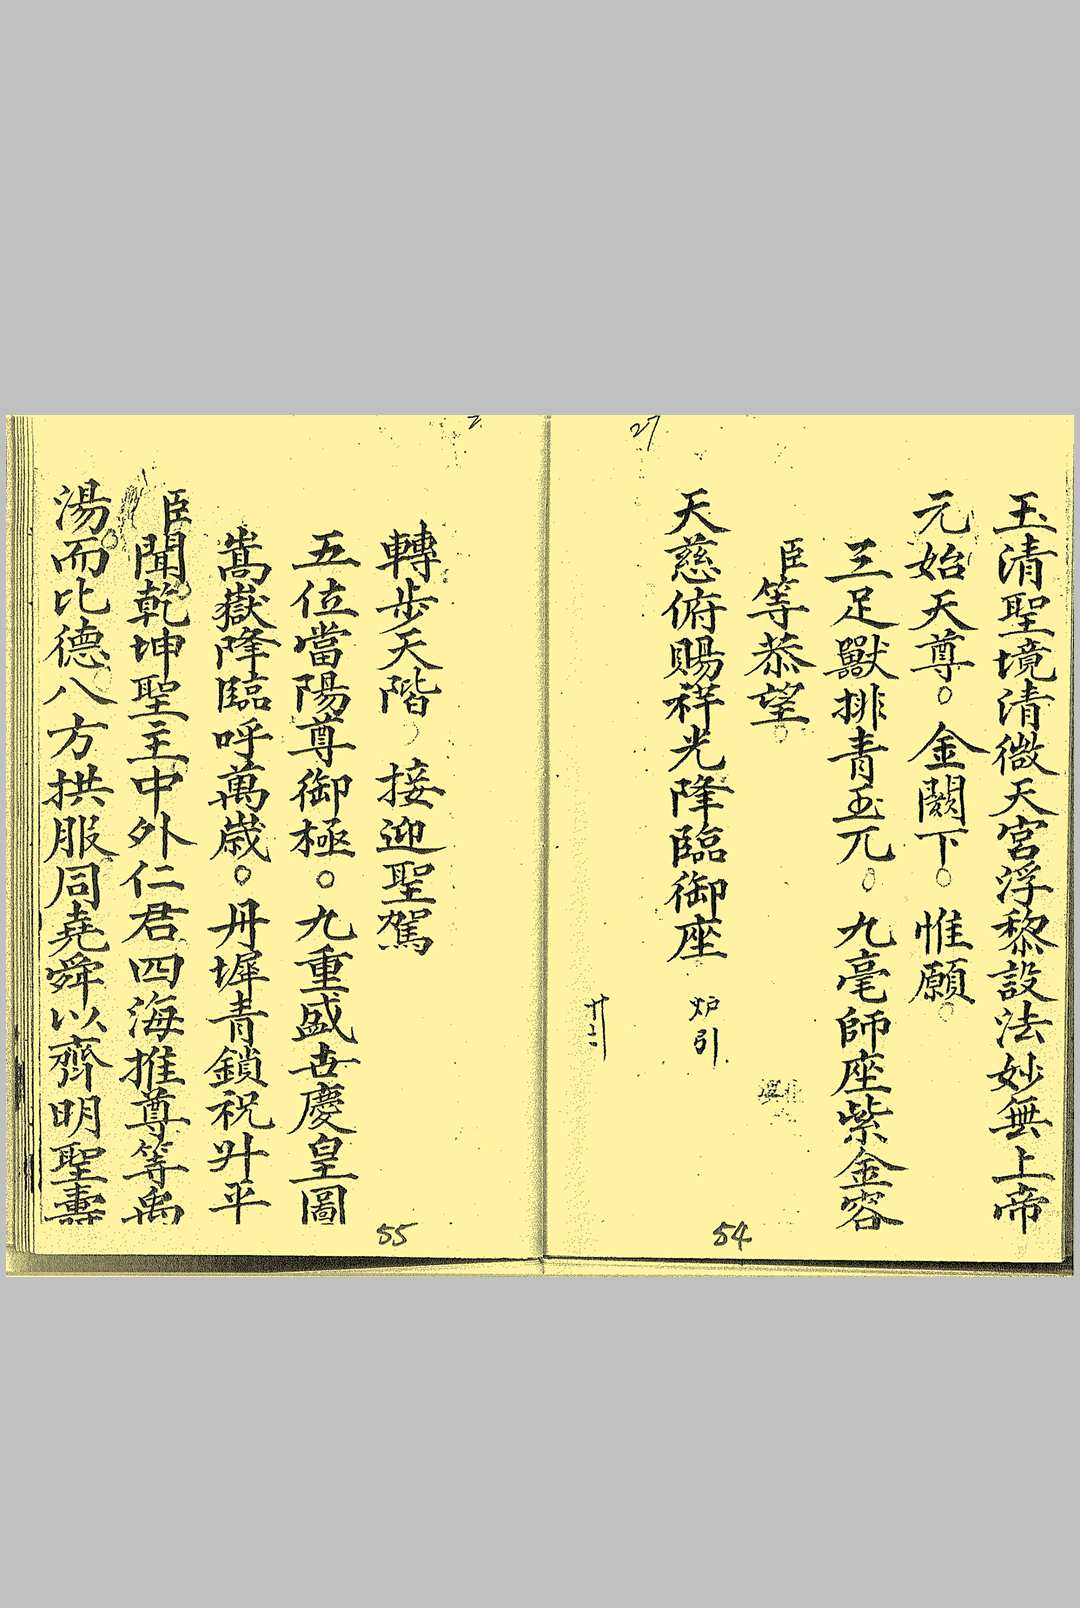 27
玉清聖境清微天宮浮黎設法妙無上帝
元始天尊。金闕下。惟願。
三足獸排青玉兀。九毫師座紫金容
臣等恭望。
天慈俯賜祥光降臨御座 炉引
廿二
54
轉步天階。接迎聖駕
五位當陽尊御極。九重盛世慶皇圖
嵩嶽降臨呼萬歲。丹墀青鎖祝升平
臣聞乾坤聖主中外仁君四海推尊等禹
湯。而比德。八方拱服同堯舜以齊明聖壽
55